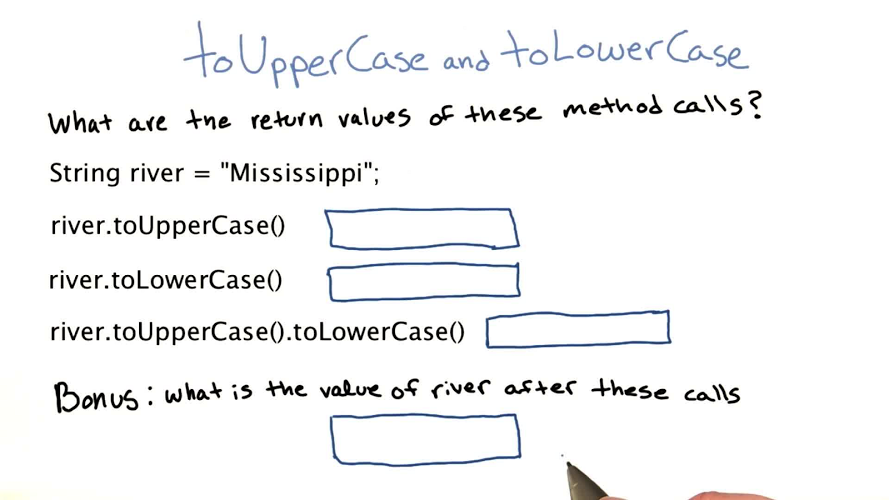 toUpperCase and toLowerCase
What are the return values of these method calls?
String river = "Mississippi";
river.toUpperCase()
river.toLowerCase()
river.toUpperCase().toLowerCase()
Bonus: what is the value of river after these calls